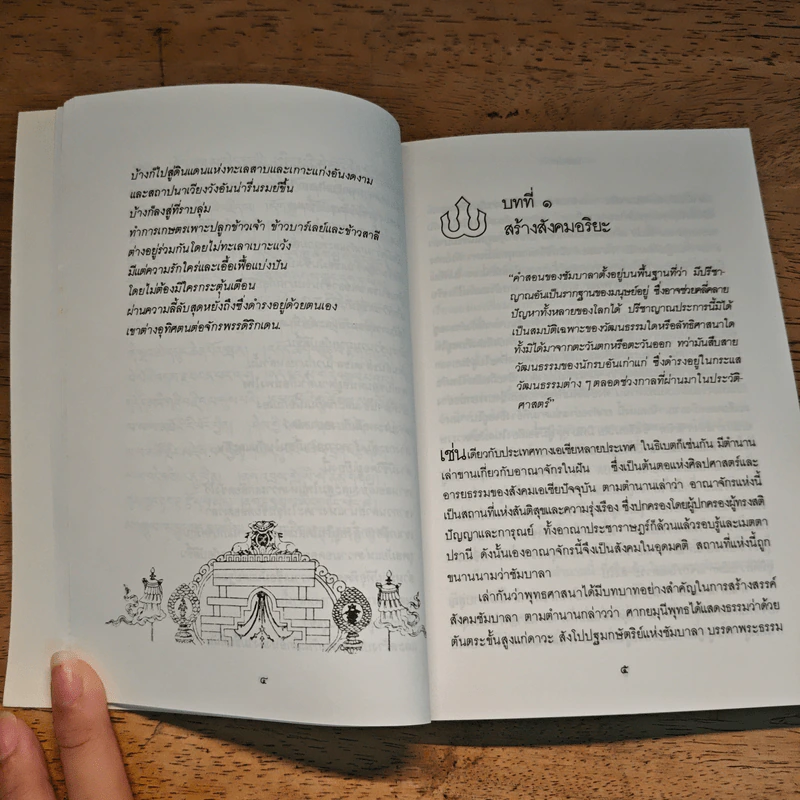 บ้างก็ไปสู่ดินแดนแห่งทะเลสาบและเกาะแก่งอันงดงาม
และสถาปนาเวียงวังอันน่ารื่นรมย์ขึ้น
บ้างก็ลงสู่ที่ราบลุ่ม
ทำการเกษตรเพาะปลูกข้าวเจ้า ข้าวบาร์เลย์และข้าวสาลี
ต่างอยู่ร่วมกันโดยไม่ทะเลาเบาะแว้ง
มีแต่ความรักใคร่และเอื้อเฟื้อแบ่งปัน
โดยไม่ต้องมีใครกระตุ้นเตือน
ผ่านความลี้ลับสุดหยั่งถึงซึ่งดำรงอยู่ด้วยตนเอง
เขาต่างอุทิศตนต่อจักรพรรดิริกเดน.
๔
บทที่ ๑
สร้างสังคมอริยะ
"คำสอนของชัมบาลาตั้งอยู่บนพื้นฐานที่ว่า มีปรีชา-
ญาณอันเป็นรากฐานของมนุษย์อยู่ ซึ่งอาจช่วยคลี่คลาย
ปัญหาทั้งหลายของโลกได้ ปรีชาญาณประการนี้มิได้
เป็นสมบัติเฉพาะของวัฒนธรรมใดหรือลัทธิศาสนาใด
ทั้งมิได้มาจากตะวันตกหรือตะวันออก ทว่ามันสืบสาย
วัฒนธรรมของนักรบอันเก่าแก่ ซึ่งดำรงอยู่ในกระแส
วัฒนธรรมต่าง ๆ ตลอดช่วงกาลที่ผ่านมาในประวัติ-
ศาสตร์"
เช่นเดียวกับประเทศทางเอเชียหลายประเทศ ในธิเบตก็เช่นกัน มีตำนาน
เล่าขานเกี่ยวกับอาณาจักรในฝัน ซึ่งเป็นต้นตอแห่งศิลปศาสตร์และ
อารยธรรมของสังคมเอเชียปัจจุบัน ตามตำนานเล่าว่า อาณาจักรแห่งนี้
เป็นสถานที่แห่งสันติสุขและความรุ่งเรือง ซึ่งปกครองโดยผู้ปกครองผู้ทรงสติ
ปัญญาและการุณย์ ทั้งอาณาประชาราษฎร์ก็ล้วนแล้วรอบรู้และเมตตา
ปรานี ดังนั้นเองอาณาจักรนี้จึงเป็นสังคมในอุดมคติ สถานที่แห่งนี้ถูก
ขนานนามว่าชัมบาลา
เล่ากันว่าพุทธศาสนาได้มีบทบาทอย่างสำคัญในการสร้างสรรค์
สังคมชัมบาลา ตามตำนานกล่าวว่า ศากยมุนีพุทธได้แสดงธรรมว่าด้วย
ตันตระขั้นสูงแก่ดาวะ สังโปปฐมกษัตริย์แห่งชัมบาลา บรรดาพระธรรม
๕